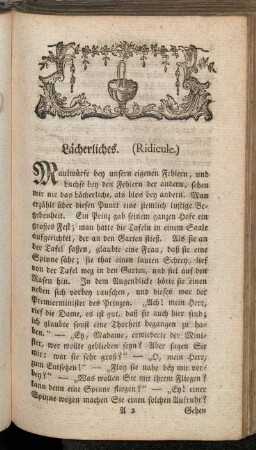 Lächerliches. (Ridicule.)
Maulwürfe bey unsern eigenen Fehlern, und
Luchse bey den Fehlern der andern, sehen
wir nie das Lächerliche, als blos bey andern. Man
erzählt über diesen Punct eine ziemlich lustige Be-
gebenheit. Ein Prinz gab seinem ganzen Hofe ein
großes Fest; man hatte die Tafeln in einem Saale
aufgerichtet, der an den Garten stieß. Als sie an
der Tafel saßen, glaubte eine Frau, daß sie eine
Spinne sähe; sie that einen lauten Schrey, lief
von der Tafel weg in den Garten, und fiel auf den
Rasen hin. In dem Augenblicke hörte sie einen
neben sich vorbey rauschen, und dieses war der
Premierminister des Prinzen. „Ach! mein Herr,
rief die Dame, es ist gut, daß sie auch hier sind;
ich glaubte sonst eine Thorheit begangen zu ha-
ben.“ — „Ey, Madame, erwiederte der Mini-
ster, wer wollte geblieben seyn? Aber sagen Sie
mir: war sie sehr groß?“ — „O, mein Herr,
zum Entsetzen!“ — „Flog sie nahe bey mir vor-
bey?“ — „Was wollen Sie mit ihrem Fliegen?
kann denn eine Spinne fliegen?“ — „Ey! einer
Spinne wegen machen Sie einen solchen Aufruhr?
A 2 Gehen